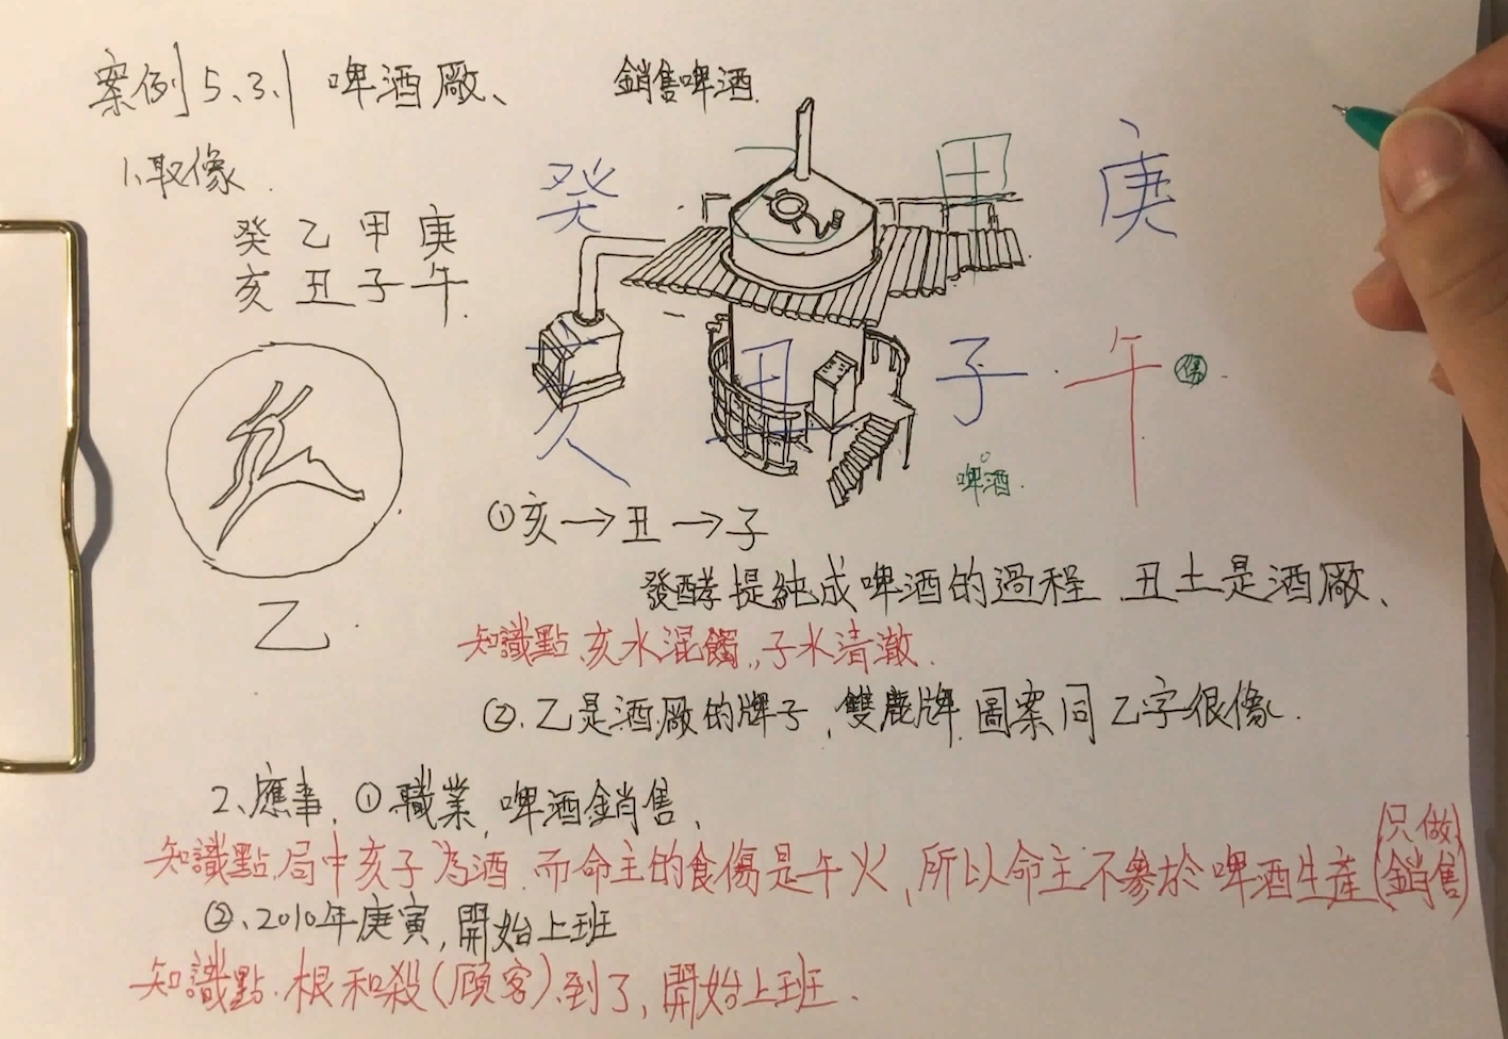 案例5.3.1 啤酒廠、 銷售啤酒.
1、取像.
癸 乙 甲 庚
亥 丑 子 午.
癸 乙 甲 庚
亥 丑 子 午 傷
啤酒.
乙
①亥→丑→子
發酵提純成啤酒的過程、丑土是酒廠、
知識點、亥水混濁,,子水清澈.
②、乙是酒廠的牌子、雙鹿牌.圖案同乙字很像.
2、應事、①職業、啤酒銷售、
知識點.局中亥子為酒.而命主的食傷是午火,所以命主不參於啤酒生產(只做銷售)
②、2010年庚寅,開始上班
知識點.根和殺(顧客)、到了,開始上班.